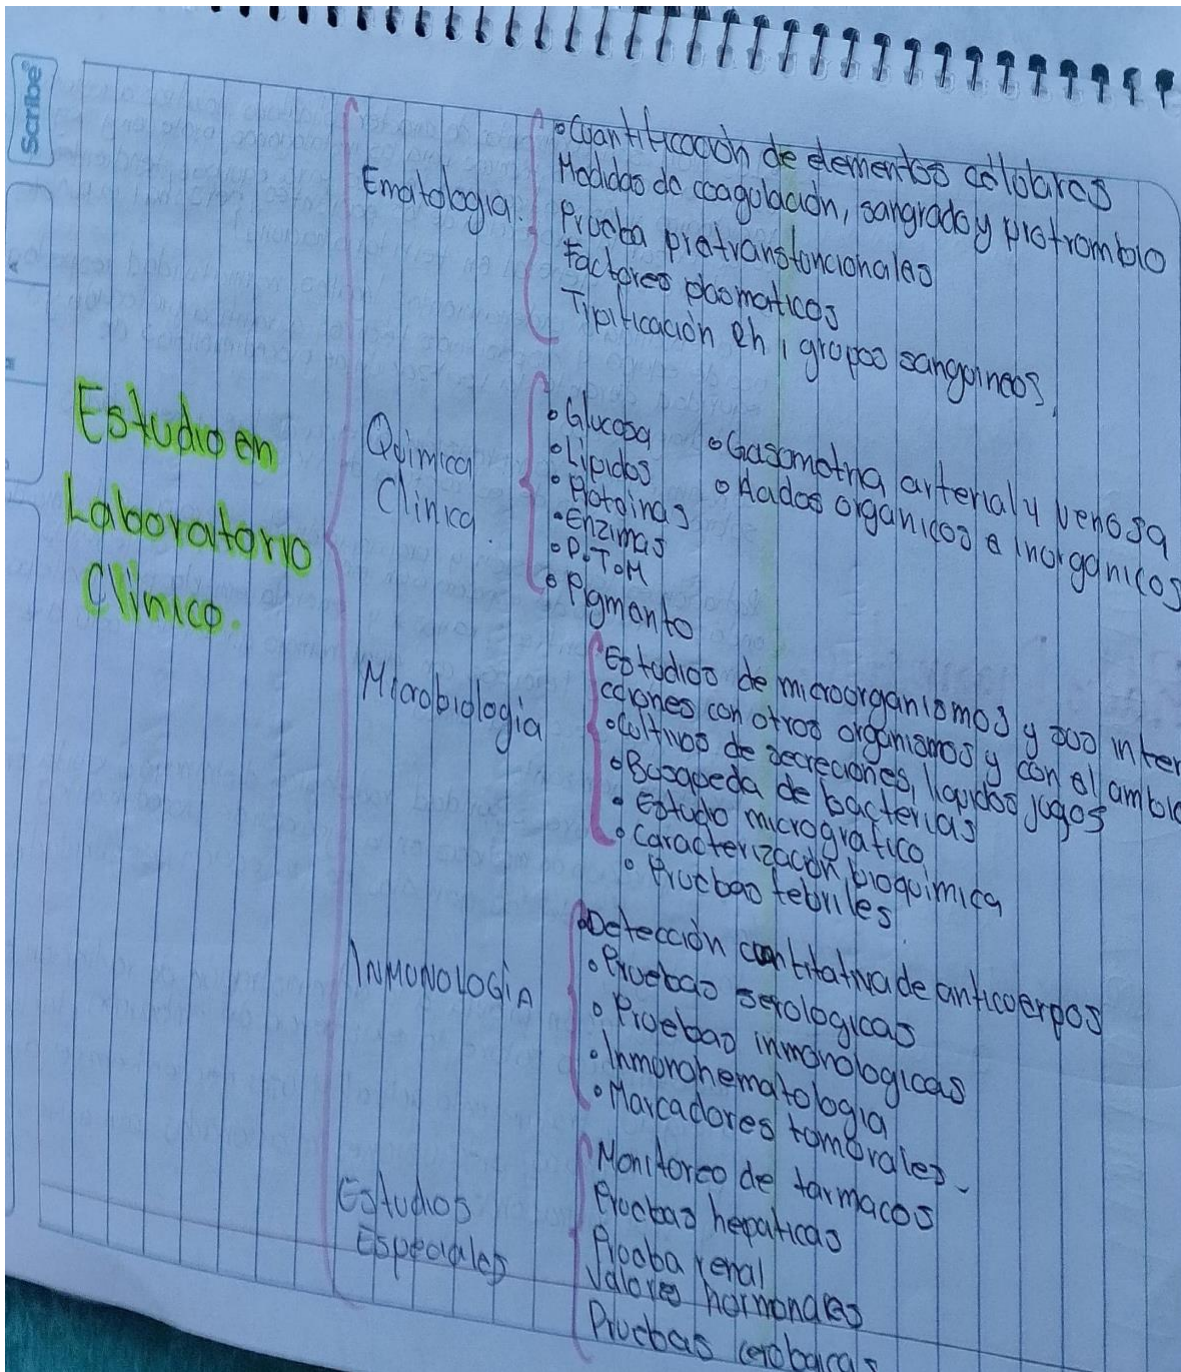 Scribe
Estudio en
Laboratorio
Clínico.
Ematologia.
• Cuantificación de elementos celulares
Medidas de coagulación, sangrado y protrombio
Prueba pretransfuncionales
Factores plasmaticos
Tipificación Rh, grupos sanguineos.
Química
Clínica.
• Glucosa
• Lipidos
• Proteinas
• Enzimas
• D.T.M
• Pigmento
• Gasometria arterial y venosa
• Acidos organicos e inorganicos
Microbiologia
Estudios de microorganismos y sus inter
cciones con otros organismos y con el ambie
• Cultivos de secreciones, liquidos jugos
• Busqueda de bacterias
• Estudio micrografico
• Caracterización bioquimica
• Pruebas febriles.
INMUNOLOGIA
• Detección cuantitativa de anticuerpos
• Pruebas serologicas
• Pruebas inmonologicas
• Inmunohematologia
• Marcadores tumorales.
Estudios
Especiales
Monitoreo de farmacos
Pruebas hepaticas
Prueba renal
Valores hormonales
Pruebas